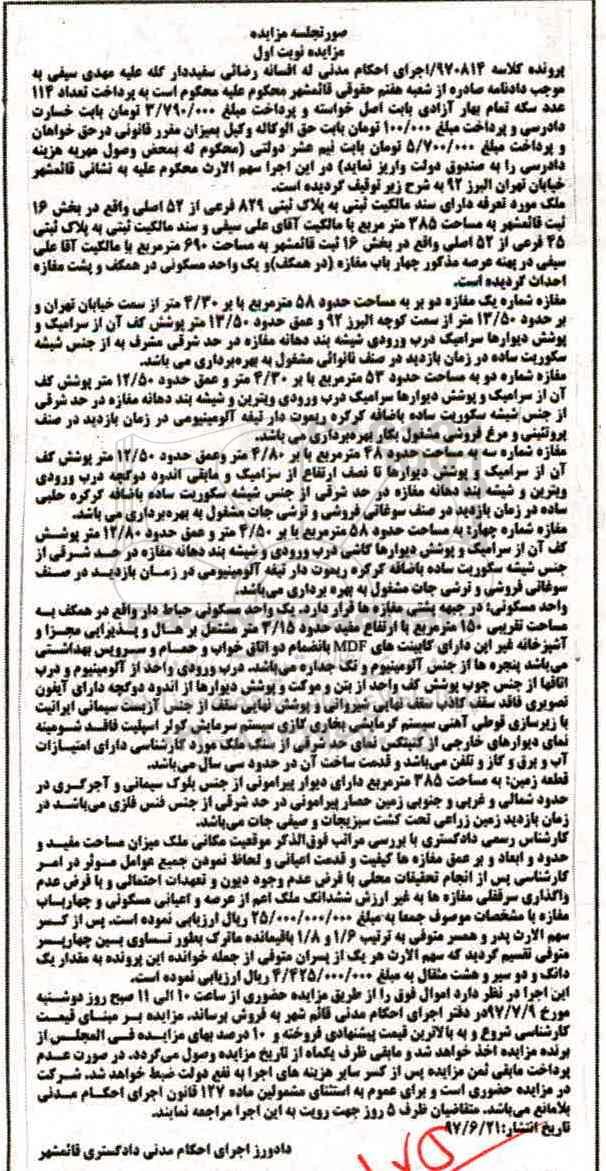 صورتجلسه مزایده
مزایده نوبت اول
پرونده کلاسه ۹۷۰۸۱۴/اجرای احکام مدنی له افسانه رضائی سفیددار کله علیه مهدی سیفی به
موجب دادنامه صادره از شعبه هفتم حقوقی قائمشهر محکوم علیه محکوم است به پرداخت تعداد ۱۱۴
عدد سکه تمام بهار آزادی بابت اصل خواسته و پرداخت مبلغ ۳/۷۹۰/۰۰۰ تومان بابت خسارت
دادرسی و پرداخت مبلغ ۱۰۰/۰۰۰ تومان بابت حق الوکاله وکیل بمیزان مقرر قانونی درحق خواهان
و پرداخت مبلغ ۵/۷۰۰/۰۰۰ تومان بابت نیم عشر دولتی (محکوم له بمحض وصول مهریه هزینه
دادرسی را به صندوق دولت واریز نماید) در این اجرا سهم الارث محکوم علیه به نشانی قائمشهر
خیابان تهران البرز ۹۲ به شرح زیر توقیف گردیده است.
ملک مورد تعرفه دارای سند مالکیت ثبتی به پلاک ثبتی ۸۲۹ فرعی از ۵۲ اصلی واقع در بخش ۱۶
ثبت قائمشهر به مساحت ۳۸۵ متر مربع با مالکیت آقای علی سیفی و سند مالکیت ثبتی به پلاک ثبتی
۴۵ فرعی از ۵۲ اصلی واقع در بخش ۱۶ ثبت قائمشهر به مساحت ۶۹۰ مترمربع با مالکیت آقا علی
سیفی در پهنه عرصه مذکور چهار باب مغازه (در همکف)و یک واحد مسکونی در همکف و پشت مغازه
احداث گردیده است.
مغازه شماره یک مغازه دو بر به مساحت حدود ۵۸ مترمربع با بر ۴/۳۰ متر از سمت خیابان تهران و
بر حدود ۱۳/۵۰ متر از سمت کوچه البرز ۹۲ و عمق حدود ۱۳/۵۰ متر پوشش کف آن از سرامیک و
پوشش دیوارها سرامیک درب ورودی شیشه بند دهانه مغازه در حد شرقی مشرف به از جنس شیشه
سکوریت ساده در زمان بازدید در صنف نانوائی مشغول به بهره‌برداری می باشد.
مغازه شماره دو به مساحت حدود ۵۳ مترمربع با بر ۴/۳۰ متر و عمق حدود ۱۲/۵۰ متر پوشش کف
آن از سرامیک و پوشش دیوارها سرامیک درب ورودی ویترین و شیشه بند دهانه مغازه در حد شرقی
از جنس شیشه سکوریت ساده باضافه کرکره ریموت دار تیغه آلومینیومی در زمان بازدید در صنف
پروتئینی و مرغ فروشی مشغول بکار بهره‌برداری می باشد.
مغازه شماره سه به مساحت حدود ۴۸ مترمربع با بر ۴/۸۰ متر وعمق حدود ۱۲/۵۰ متر پوشش کف
آن از سرامیک و پوشش دیوارها تا نصف ارتفاع از سرامیک و مابقی اندود دوکچه درب ورودی
ویترین و شیشه بند دهانه مغازه در حد شرقی از جنس شیشه سکوریت ساده باضافه کرکره حلبی
ساده در زمان بازدید در صنف سوغاتی فروشی و ترشی جات مشغول به بهره‌برداری می باشد.
مغازه شماره چهار: به مساحت حدود ۵۸ مترمربع با بر ۴/۵۰ متر و عمق حدود ۱۲/۸۰ متر پوشش
کف آن از سرامیک و پوشش دیوارها کاشی درب ورودی و شیشه بند دهانه مغازه در حد شرقی از
جنس شیشه سکوریت ساده باضافه کرکره ریموت دار تیغه آلومینیومی در زمان بازدید در صنف
سوغاتی فروشی و ترشی جات مشغول به بهره برداری می‌باشد.
واحد مسکونی: در جبهه پشتی مغازه ها قرار دارد. یک واحد مسکونی حیاط دار واقع در همکف به
مساحت تقریبی ۱۵۰ مترمربع با ارتفاع مفید حدود ۳/۱۵ متر مشتمل بر هال و پذیرایی مجزا و
آشپزخانه غیر اپن دارای کابینت های MDF بانضمام دو اتاق خواب و حمام و سرویس بهداشتی
می‌باشد پنجره ها از جنس آلومینیوم و تک جداره می‌باشد. درب ورودی واحد از آلومینیوم و درب
اتاقها از جنس چوب پوشش کف واحد از بتن و موکت و پوشش دیوارها از اندود دوکچه دارای آیفون
تصویری فاقد سقف کاذب سقف نهایی شیروانی و پوشش نهایی سقف از جنس آزبست سیمانی ایرانیت
با زیرسازی قوطی آهنی سیستم گرمایشی بخاری گازی سیستم سرمایش کولر اسپلیت فاقد شومینه
نمای دیوارهای خارجی از کنیتکس نمای حد شرقی از سنگ ملک مورد کارشناسی دارای امتیازات
آب و برق و گاز و تلفن می‌باشد و قدمت ساخت آن در حدود سی سال می‌باشد.
قطعه زمین: به مساحت ۳۸۵ مترمربع دارای دیوار پیرامونی از جنس بلوک سیمانی و آجرکری در
حدود شمالی و غربی و جنوبی زمین حصار پیرامونی در حد شرقی از جنس فنس فلزی می‌باشد در
زمان بازدید زمین زراعی تحت کشت سبزیجات و صیفی جات می‌باشد.
کارشناس رسمی دادگستری با بررسی مراتب فوق‌الذکر موقعیت مکانی ملک میزان مساحت مفید و
حدود و ابعاد و بر عمق مغازه ها کیفیت و قدمت اعیانی و لحاظ نمودن جمیع عوامل موثر در امر
کارشناسی پس از انجام تحقیقات محلی با فرض عدم وجود دیون و تعهدات احتمالی و با فرض عدم
واگذاری سرقفلی مغازه ها به غیر ارزش ششدانگ ملک اعم از عرصه و اعیانی مسکونی و چهارباب
مغازه با مشخصات موصوف جمعا به مبلغ ۲۵/۰۰۰/۰۰۰/۰۰۰ ریال ارزیابی نموده است. پس از کسر
سهم الارث پدر و همسر متوفی به ترتیب ۱/۶ و ۱/۸ باقیمانده ماترک بطور تساوی بین چهارپسر
متوفی تقسیم گردید که سهم الارث هر یک از پسران متوفی از جمله خوانده این پرونده به مقدار یک
دانک و دو سیر و هشت مثقال به مبلغ ۴/۴۲۵/۰۰۰/۰۰۰ ریال ارزیابی نموده است.
این اجرا در نظر دارد اموال فوق را از طریق مزایده حضوری از ساعت ۱۰ الی ۱۱ صبح روز دوشنبه
مورخ ۹۷/۷/۹در دفتر اجرای احکام مدنی قائم شهر به فروش برساند. مزایده بر مبنای قیمت
کارشناسی شروع و به بالاترین قیمت پیشنهادی فروخته و ۱۰ درصد بهای مزایده فی المجلس از
برنده مزایده اخذ خواهد شد و مابقی ظرف یکماه از تاریخ مزایده وصول می‌گردد. در صورت عدم
پرداخت مابقی ثمن مزایده پس از کسر سایر هزینه های اجرا به نفع دولت ضبط خواهد شد. شرکت
در مزایده حضوری است و برای عموم به استثنای مشمولین ماده ۱۲۷ قانون اجرای احکام مدنی
بلامانع می‌باشد. متقاضیان ظرف ۵ روز جهت رویت به این اجرا مراجعه نمایند.
تاریخ انتشار: ۹۷/۶/۲۱
دادورز اجرای احکام مدنی دادگستری قائمشهر